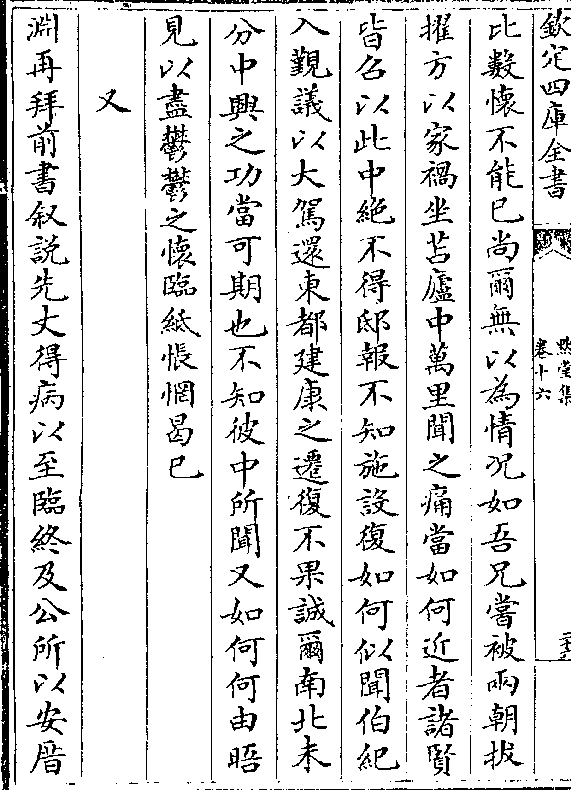 欽定四庫全書
黙堂集
卷十六
比數懷不能已尚爾無以為情况如吾兄嘗被兩朝拔
擢方以家禍坐苫廬中萬里聞之痛當如何近者諸賢
皆召以此中絶不得邸報不知施設復如何似聞伯紀
入覲議以大駕還東都建康之遷復不果誠爾南北未
分中興之功當可期也不知彼中所聞又如何何由晤
見以盡鬱鬱之懷臨紙悵惘曷已
又
淵再拜前書叙説先丈得病以至臨終及公所以安厝